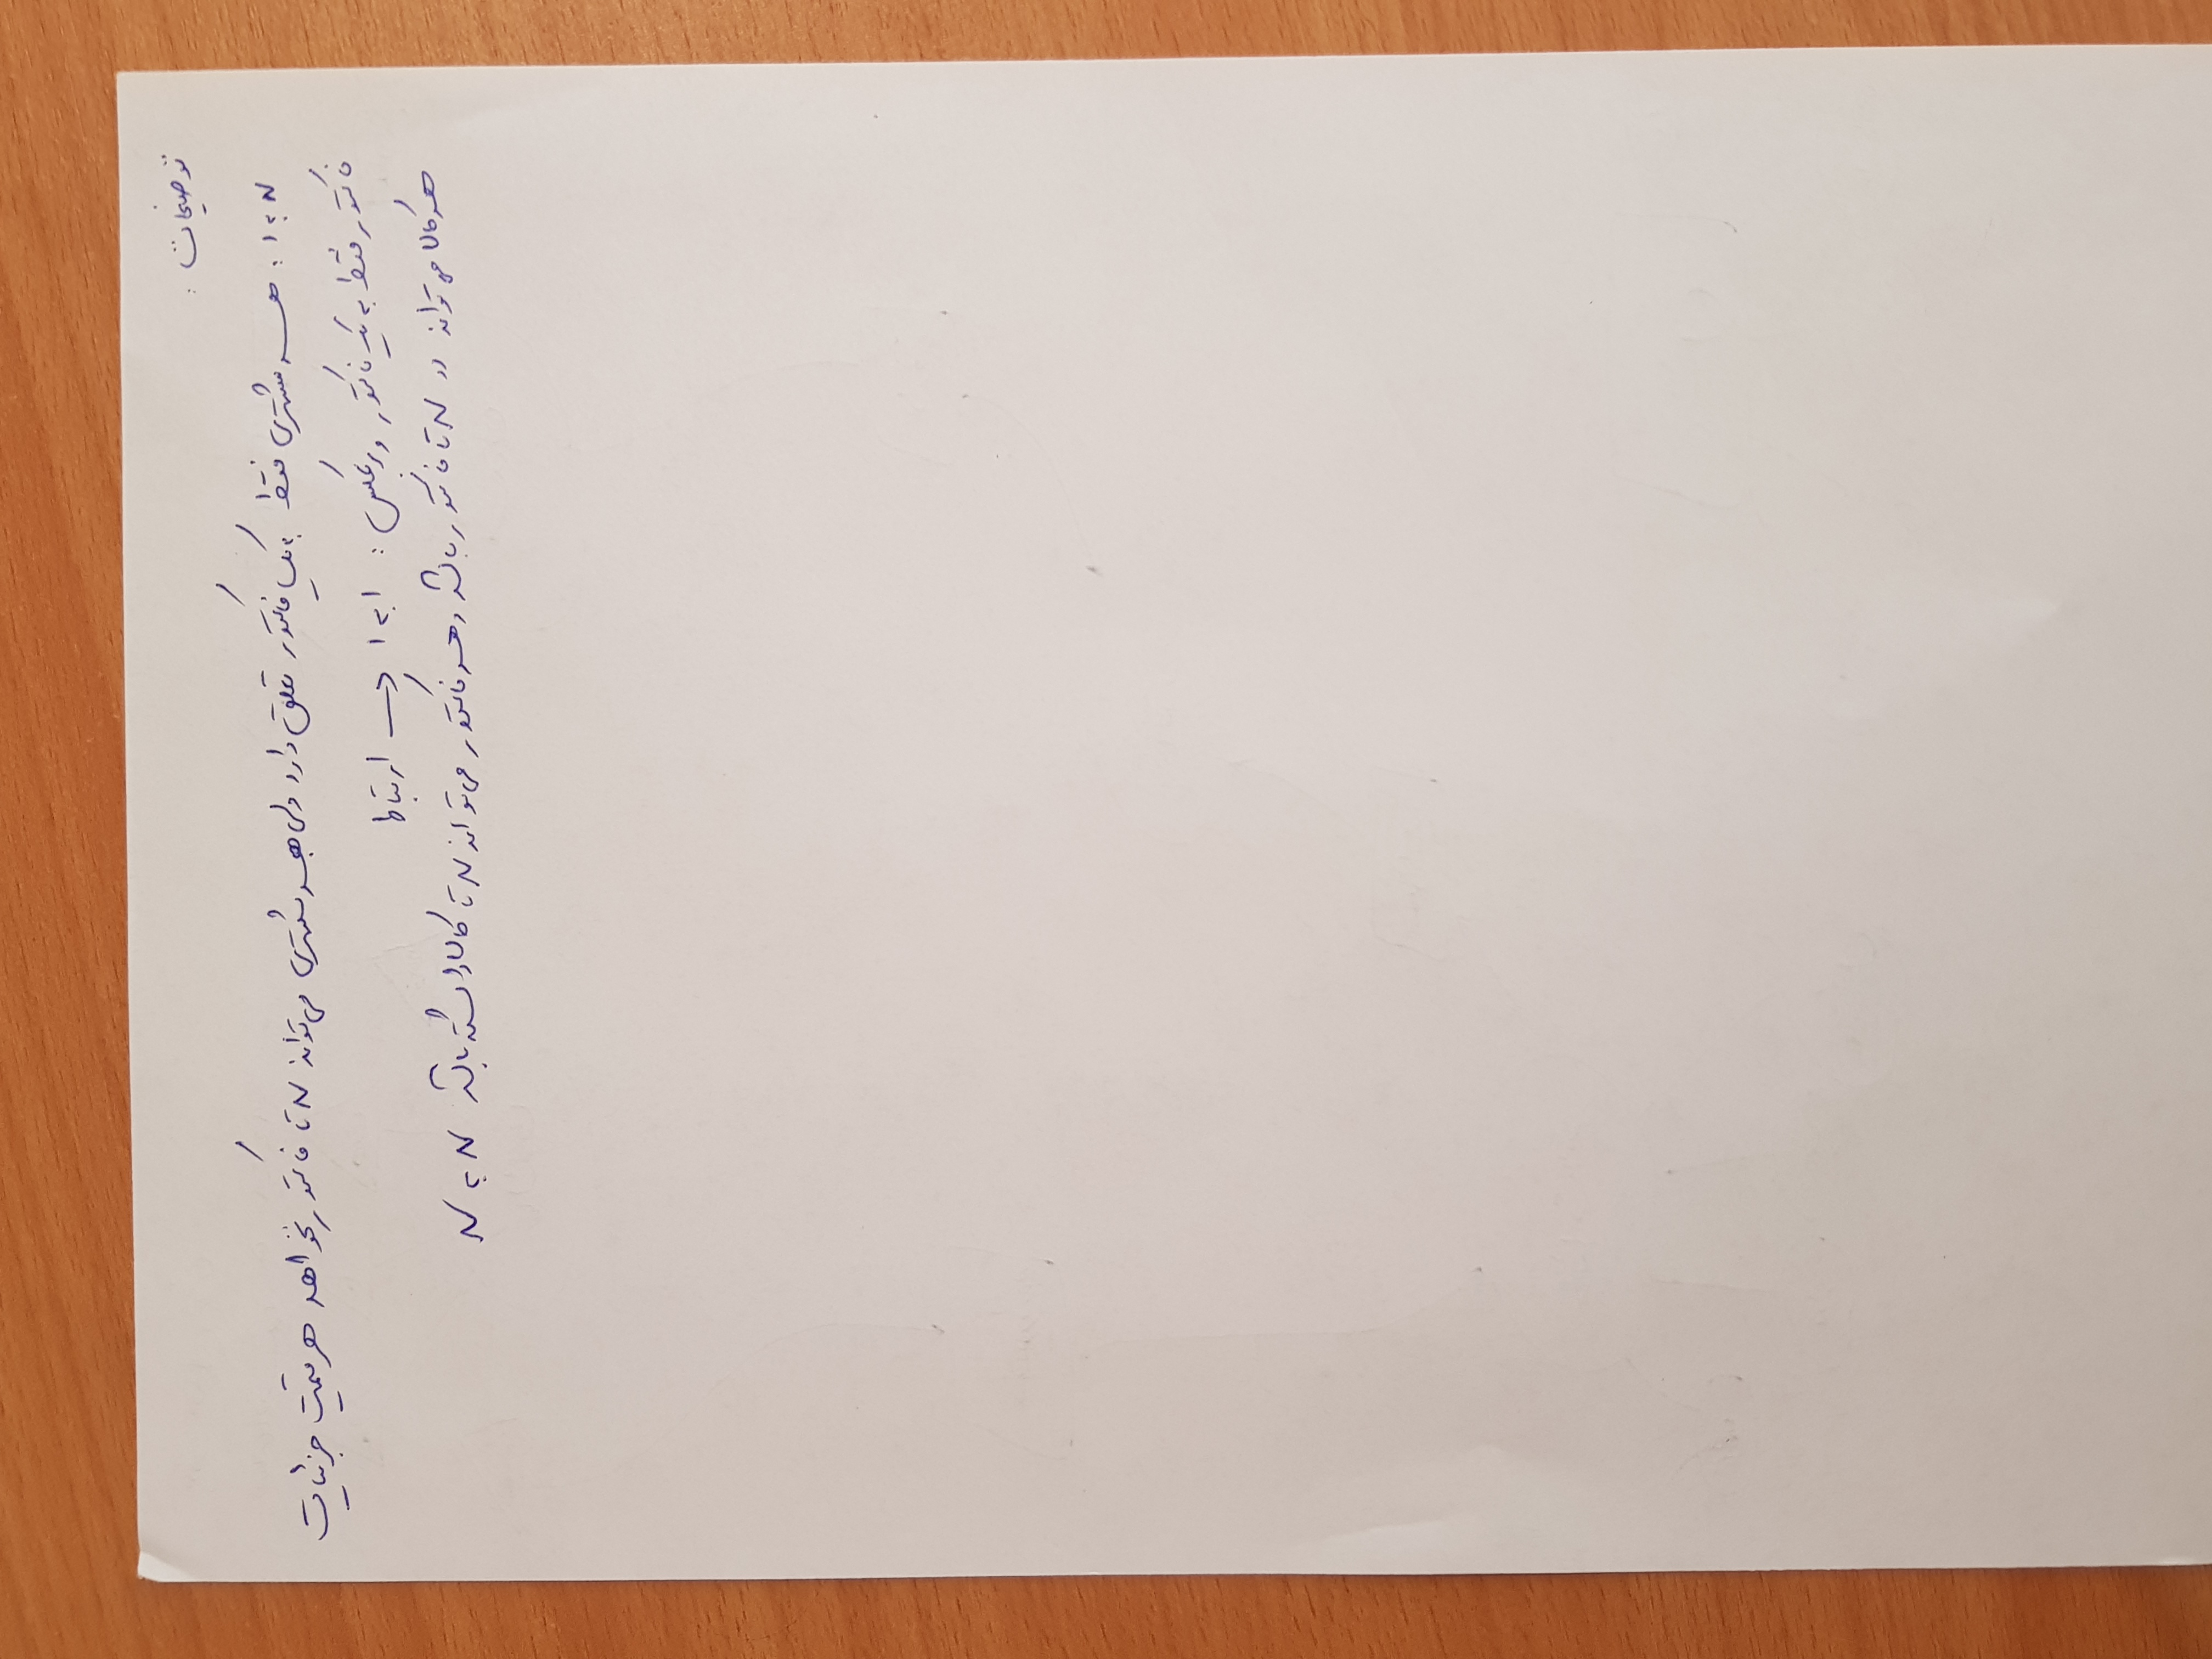 توضیحات :
N به ۱ : هر مشتری فقط به یک فاکتور تعلق دارد ولی هر مشتری می‌تواند N تا فاکتور بخواهد هر قسمت جزئیات
فاکتور فقط به یک فاکتور و برعکس : ۱ به ۱ → ارتباط
هر کالا می‌تواند در N تا فاکتور باشد و هر فاکتور می‌تواند N تا کالا داشته باشد N به N